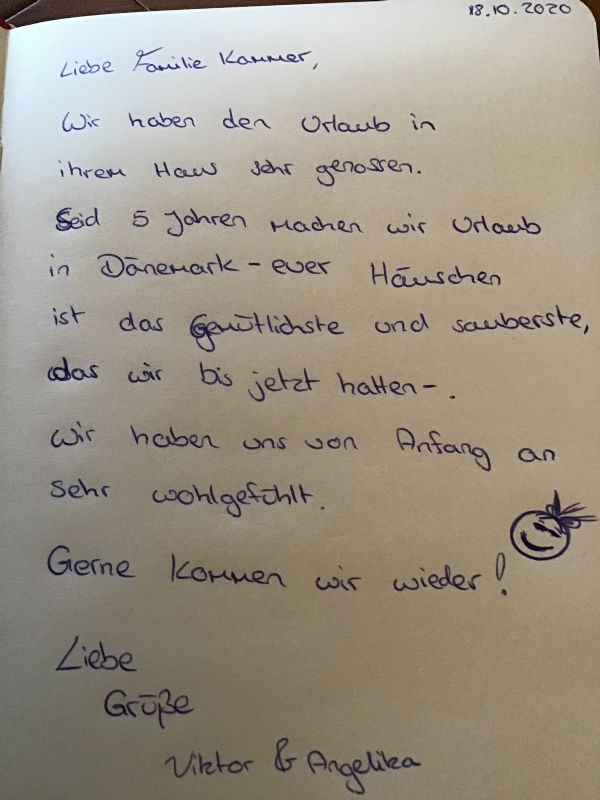 18.10.2020
Liebe Familie Kammer,
Wir haben den Urlaub in
ihrem Haus sehr genossen.
Seid 5 Jahren machen wir Urlaub
in Dänemark - euer Häuschen
ist das gemütlichste und sauberste,
das wir bis jetzt hatten-.
Wir haben uns von Anfang an
sehr wohlgefühlt.
Gerne kommen wir wieder!
Liebe
Grüße
Viktor & Angelika